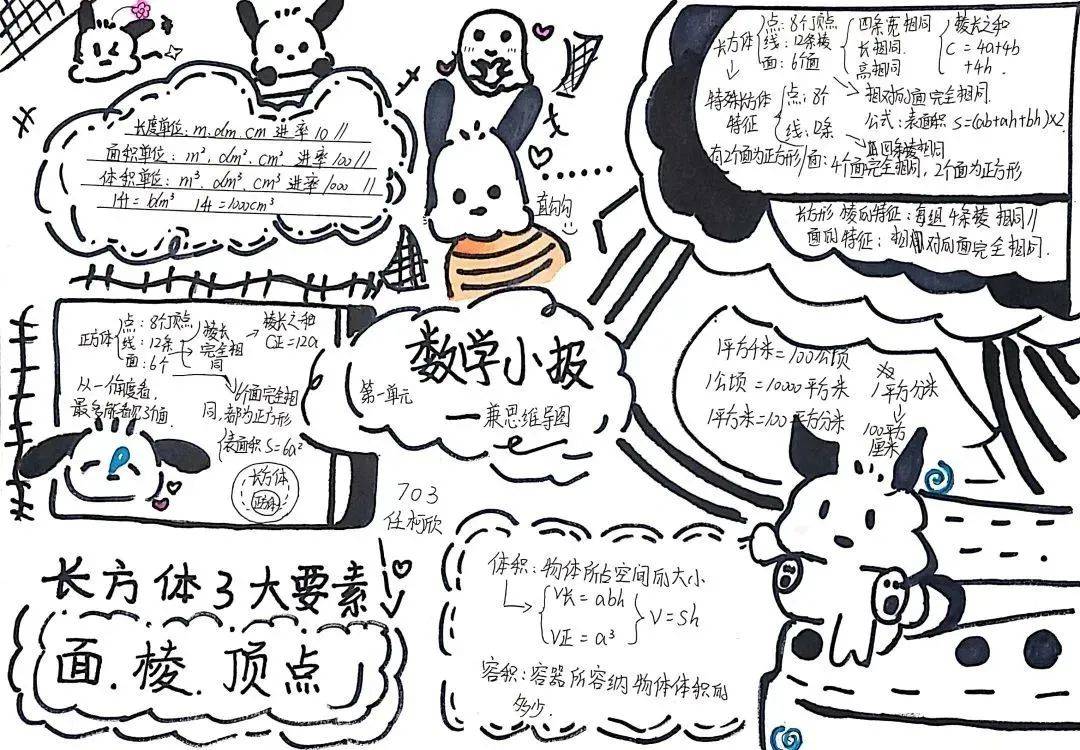 长度单位：m、dm、cm 进率10 //
面积单位：m²，dm²、cm² 进率100//
体积单位：m³、dm³、cm³ 进率1000 //
1升=1dm³ 1升=1000cm³
直勾勾
长方体
点：8个顶点
线：12条棱
面：6个面
四条宽相同
长相同.
高相同
棱长之和
C = 4a+4b
+4h.
相对的面完全相同.
公式：表面积 S=(ab+ah+bh)×2.
特殊长方体
特征
点：8个
线：12条
四条棱相同
有2个面为正方形
面：4个面完全相同，2个面为正方形
长方形 棱的特征：每组4条棱 相同//
面的特征：相对的面完全相同.
正方体
点：8个顶点
线：12条
面：6个
棱长
完全相
同
棱长之和
C正=12a
从一个角度看，
最多能看见3个面.
6个面完全相
同，都为正方形
表面积 S=6a²
长方体
正方体
数学小报
第一单元
——兼思维导图
703
任柯欣
1平方千米=100公顷
1公顷 =10000平方米
1平方米=100平方分米
1平方分米
100平方
厘米
长方体3大要素
面.棱.顶点
体积：物体所占空间的大小
V长=abh
V正=a³
V=Sh
容积：容器所容纳物体体积的
多少.